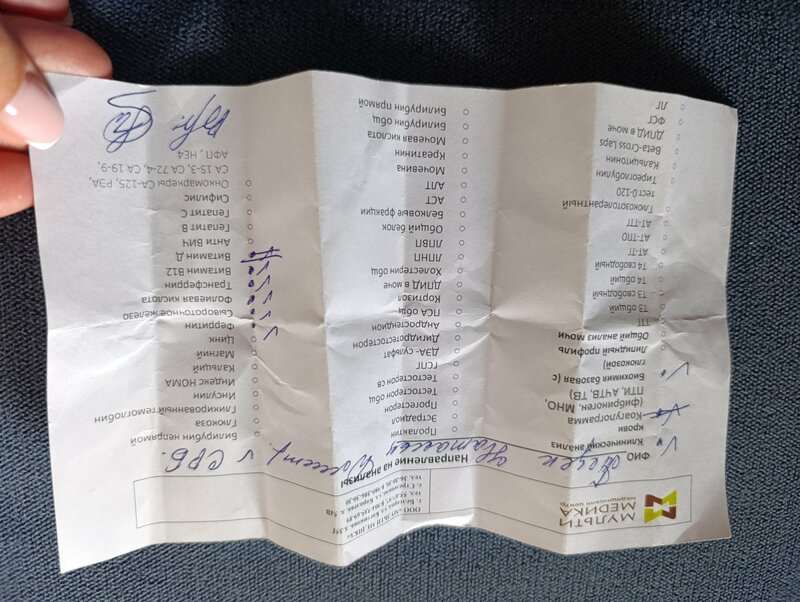 МУЛЬТИ
МЕДИКА
МЕДИЦИНСКИЙ ЦЕНТР
ООО «МУЛЬТИ МЕДИКА»
Направление на анализы
ФИО
Клинический анализ
крови
Коагулограмма
(фибриноген, МНО,
ПТИ, АЧТВ, ТВ)
Биохимия базовая (с
глюкозой)
Липидный профиль
Общий анализ мочи
ТТГ
Т3 свободный
Т3 общий
Т4 общий
Т4 свободный
АТ-ТГ
АТ-ТПО
АТ-ТТГ
Глюкозотолерантный
тест 0-120
Тиреоглобулин
Кальцитонин
Beta-Cross Laps
ДПИД в моче
ФСГ
ЛГ
Пролактин
Эстрадиол
Прогестерон
Тестостерон общ
Тестостерон св
ГСПГ
ДЭА-сульфат
Дигидротестостерон
Андростендион
ПСА общ
Кортизол
ДПИД в моче
Холестерин общ
ЛПНП
ЛПВП
Общий белок
Белковые фракции
АСТ
АЛТ
Мочевина
Креатинин
Мочевая кислота
Билирубин общ
Билирубин прямой
V СРБ.
Билирубин непрямой
Глюкоза
Гликированный гемоглобин
Инсулин
Индекс HOMA
Кальций
Магний
Цинк
Ферритин
Сывороточное железо
Фолиевая кислота
Трансферрин
Витамин В12
Витамин Д
Анти ВИЧ
Гепатит В
Гепатит С
Сифилис
Онкомаркеры СА-125, РЭА,
СА 15-3, СА 72-4, СА 19-9,
АФП, НЕ4